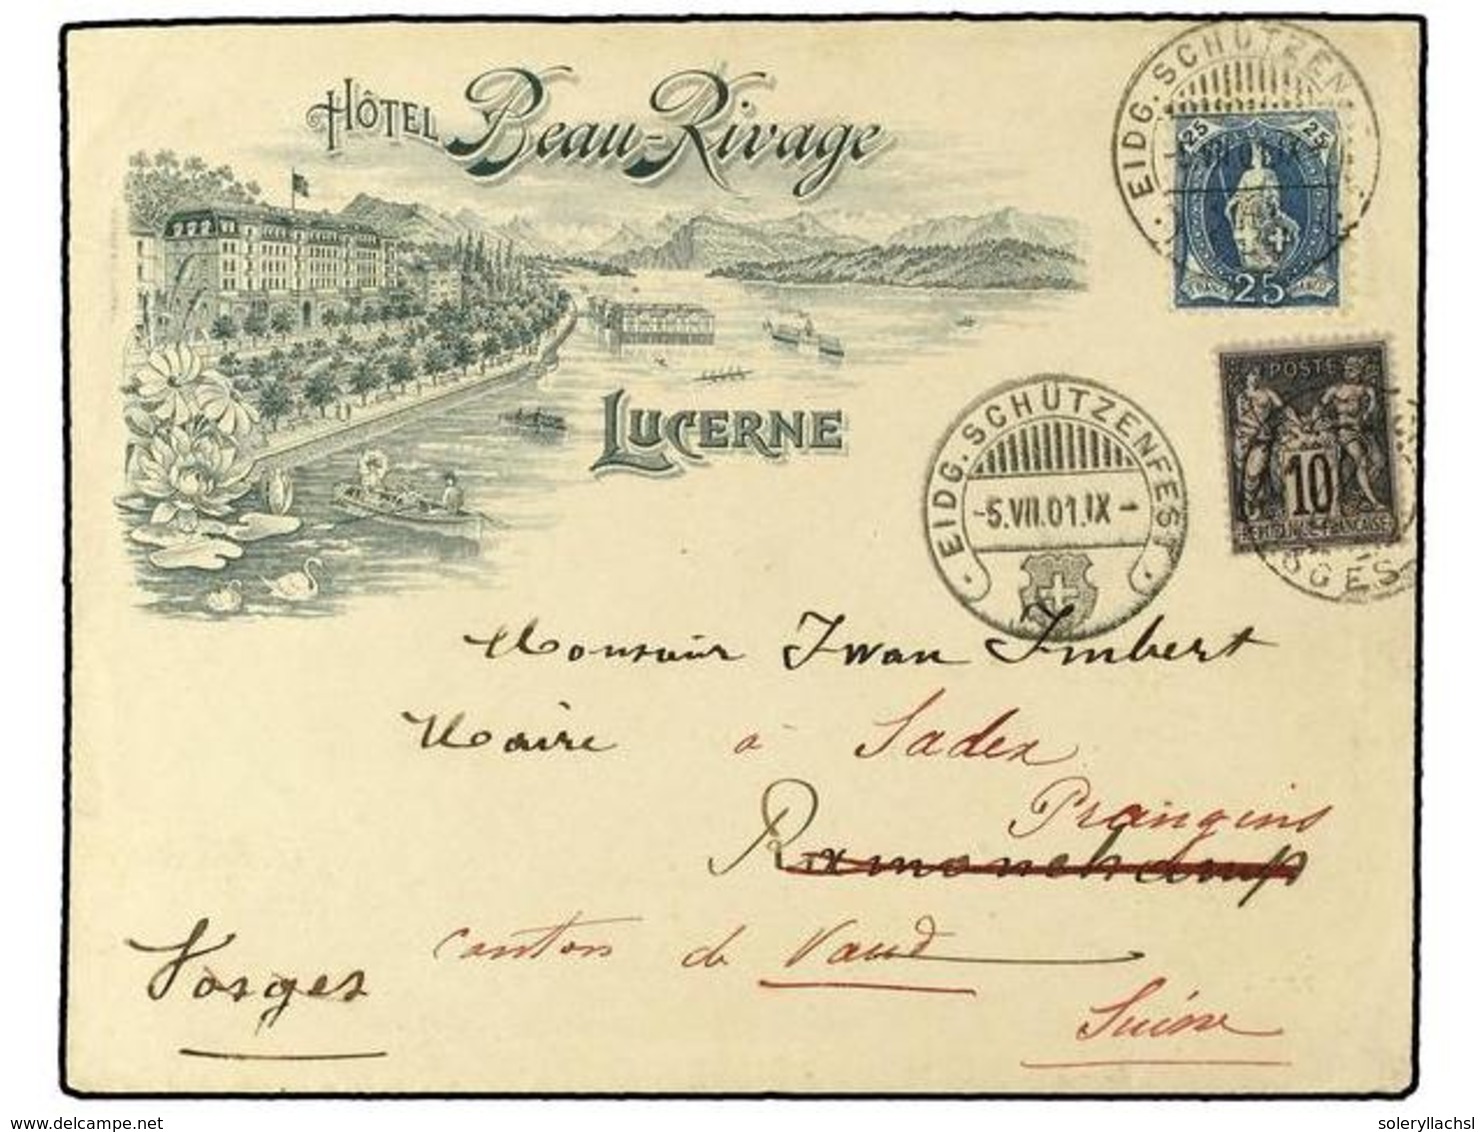 HÔTEL Beau-Rivage
LUCERNE
EIDG. SCHÜTZEN
25 25
25
FRANCO
EIDG. SCHÜTZENFEST
-5.VII.01.IX-
POSTE
10
REPUBLIQUE FRANÇAISE
OGES
Monsieur Iwan Imbert
Maire à Sadex
Prangins
Ramonchamp
Vosges
canton de Vaud
Suisse
www.delcampe.net
soleryllachsl